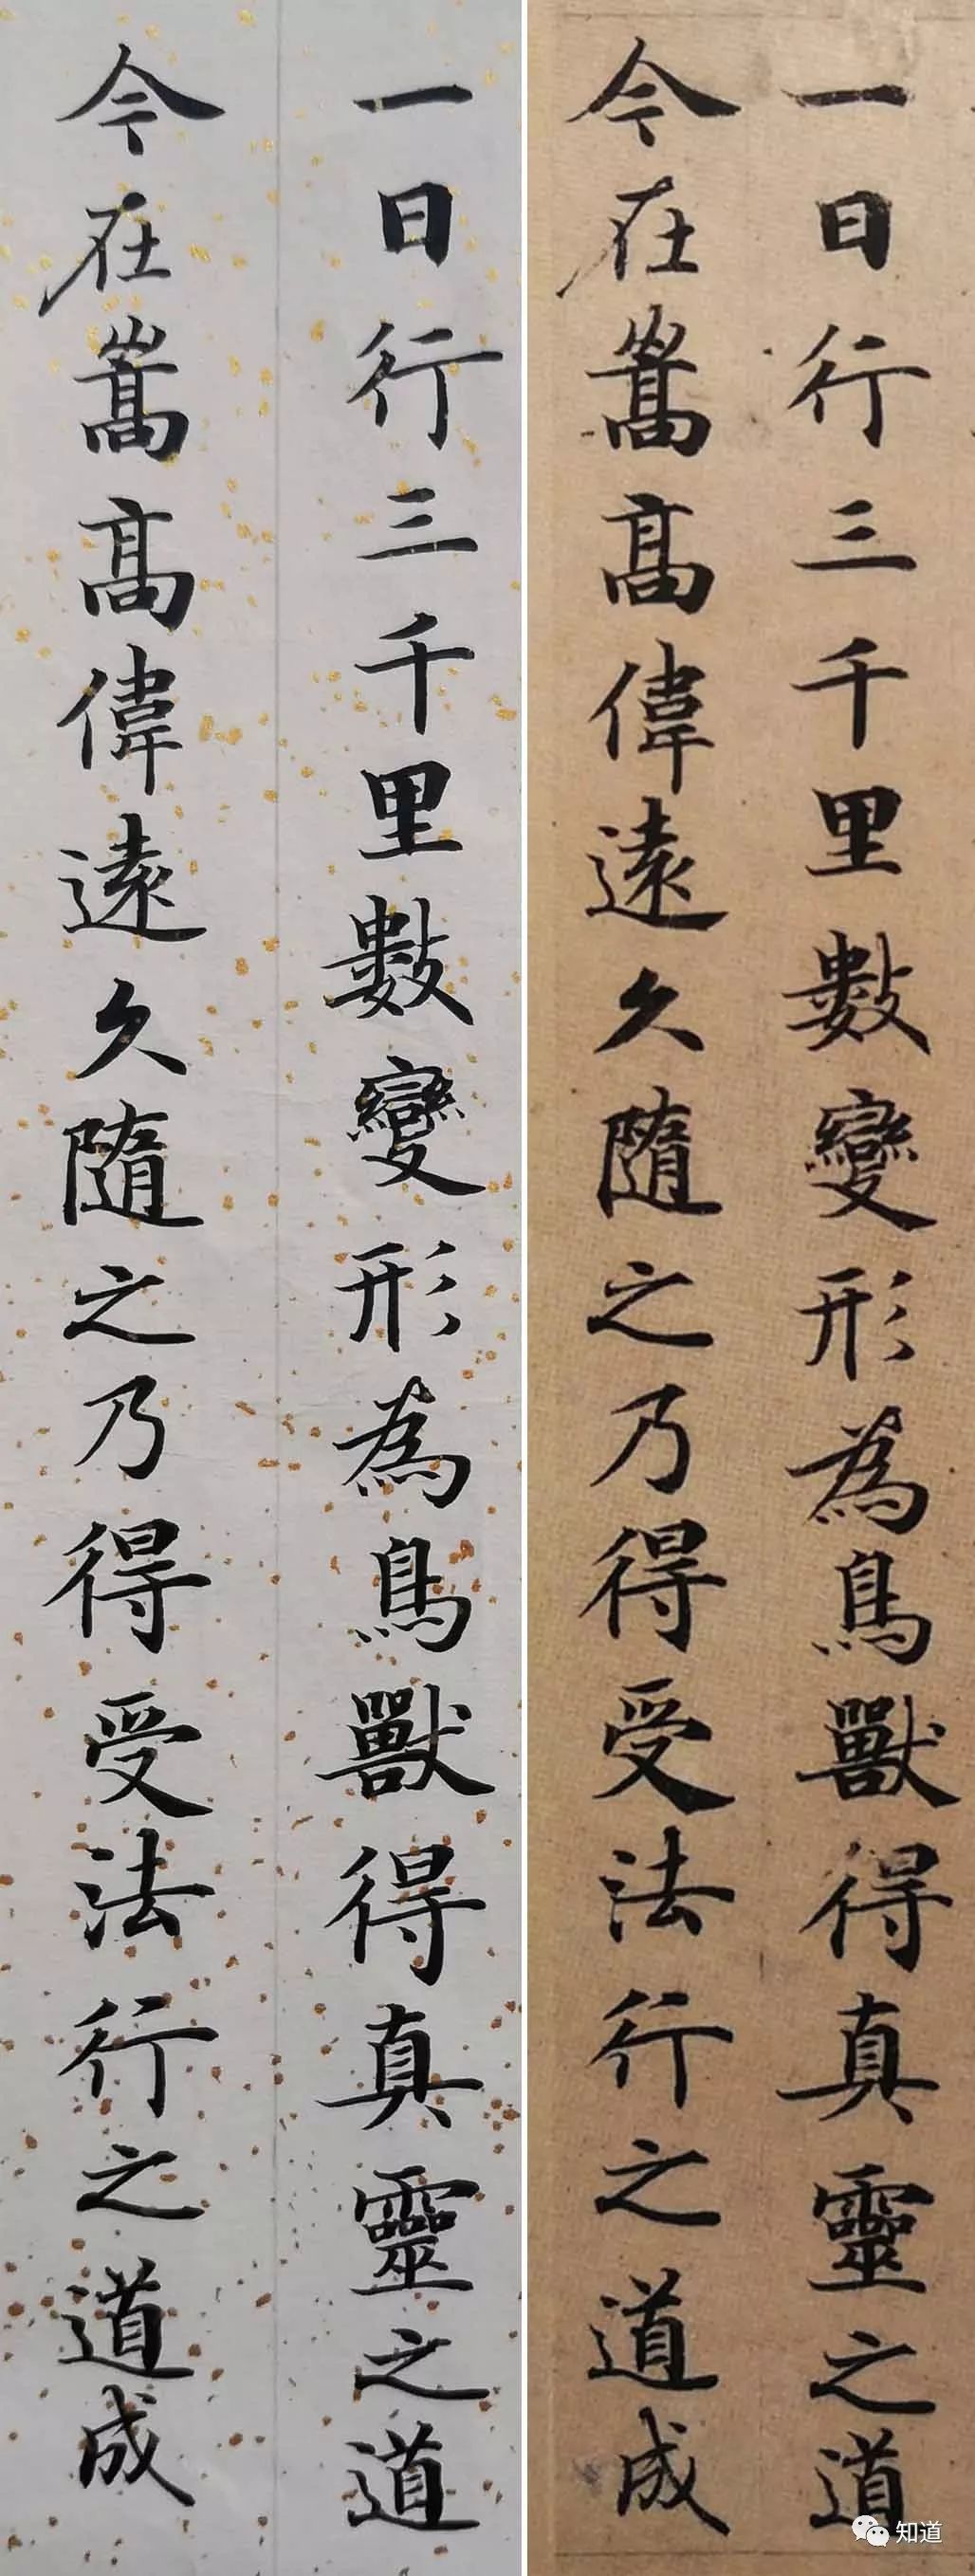 一日行三千里數變形為鳥獸得真靈之道
今在嵩高偉遠久隨之乃得受法行之道成
一日行三千里數變形為鳥獸得真靈之道
今在嵩高偉遠久隨之乃得受法行之道成
知道